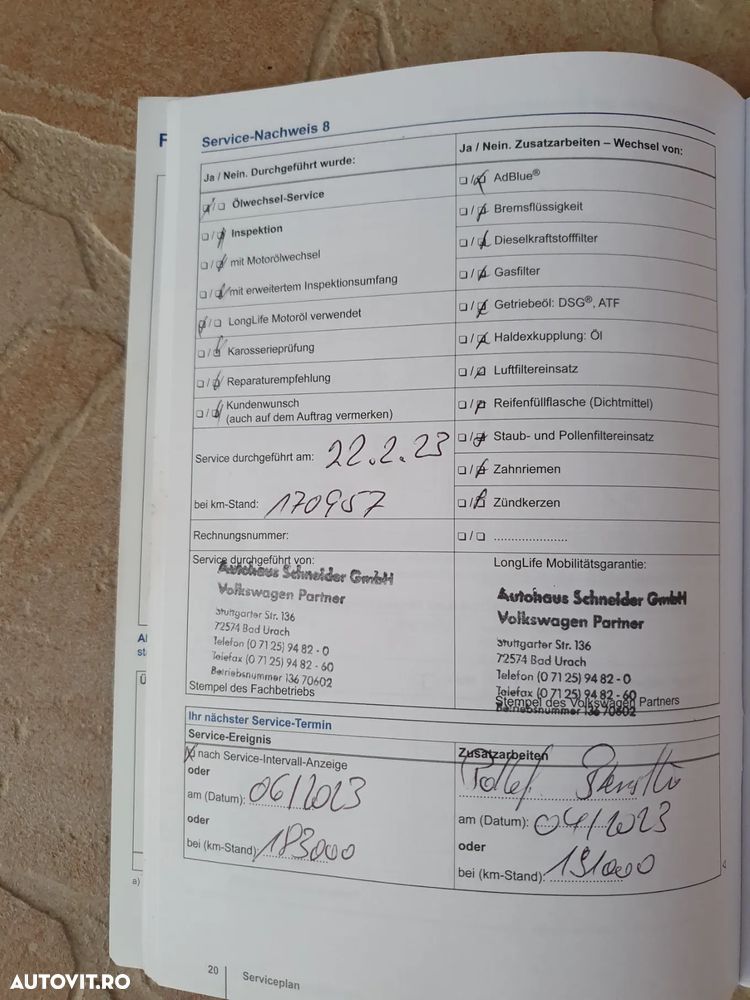 F
Service-Nachweis 8
Ja / Nein. Durchgeführt wurde:
Ölwechsel-Service
Inspektion
mit Motorölwechsel
mit erweitertem Inspektionsumfang
LongLife Motoröl verwendet
Karosserieprüfung
Reparaturempfehlung
Kundenwunsch
(auch auf dem Auftrag vermerken)
Service durchgeführt am: 22.2.23
bei km-Stand: 170957
Rechnungsnummer:
Service durchgeführt von:
Autohaus Schneider GmbH
Volkswagen Partner
Stuttgarter Str. 136
72574 Bad Urach
Telefon (0 71 25) 94 82 - 0
Telefax (0 71 25) 94 82 - 60
Betriebsnummer 136 70602
Stempel des Fachbetriebs
Ja / Nein. Zusatzarbeiten – Wechsel von:
AdBlue®
Bremsflüssigkeit
Dieselkraftstofffilter
Gasfilter
Getriebeöl: DSG®, ATF
Haldexkupplung: Öl
Luftfiltereinsatz
Reifenfüllflasche (Dichtmittel)
Staub- und Pollenfiltereinsatz
Zahnriemen
Zündkerzen
......................
LongLife Mobilitätsgarantie:
Autohaus Schneider GmbH
Volkswagen Partner
Stuttgarter Str. 136
72574 Bad Urach
Telefon (0 71 25) 94 82 - 0
Telefax (0 71 25) 94 82 - 60
Betriebsnummer 136 70602
Stempel des Volkswagen Partners
Ihr nächster Service-Termin
Service-Ereignis
nach Service-Intervall-Anzeige
oder
am (Datum): 06/2023
oder
bei (km-Stand): 183000
Zusatzarbeiten
am (Datum): 04/2023
oder
bei (km-Stand): 191000
a)
20 Serviceplan
AUTOVIT.RO